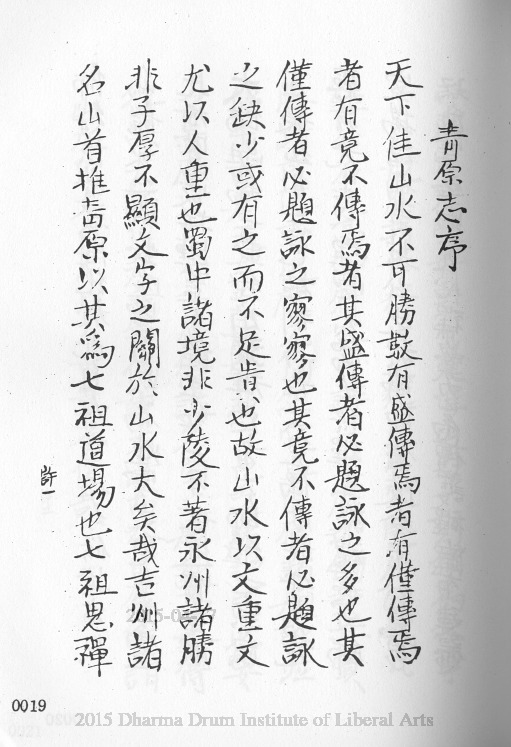 青原志序
天下佳山水不可勝數有盛傳焉者有僅傳焉
者有竟不傳焉者其盛傳者必題詠之多也其
僅傳者必題詠之寥寥也其竟不傳者必題詠
之缺少或有之而不足肯也故山水以文重文
尤以人重也蜀中諸境非少陵不著永州諸勝
非子厚不顯文字之關於山水大矣哉吉州諸
名山首推青原以其為七祖道場也七祖思禪
許一
0019
2015 Dharma Drum Institute of Liberal Arts